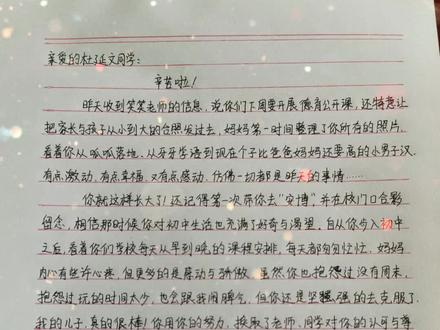 亲爱的杜延文同学：
辛苦啦！
昨天收到笑笑老师的信息，说你们下周要开展德育公开课，还特意让
把家长与孩子从小到大的合照发过去，妈妈第一时间整理了你所有的照片，
看着你从呱呱落地、从牙牙学语到现在个子比爸爸妈妈还要高的小男子汉，
有点激动，有点幸福，又有点感动，仿佛一切都是昨天的事情……
你就这样长大了！还记得第一次带你去“安博”，并在校门口合影
留念，相信那时候你对初中生活也充满了好奇与渴望。自从你步入初中
之后，看着你们学校每天从早到晚的课程安排，每天都匆匆忙忙，妈妈
内心有些许心疼，但更多的是感动与骄傲，虽然你也抱怨过没有周末，
抱怨过玩的时间太少，也会跟我闹脾气，但你还是坚强的去克服了，
我的儿子，真的很棒！你用你的努力，换取了老师、同学对你的认可与尊